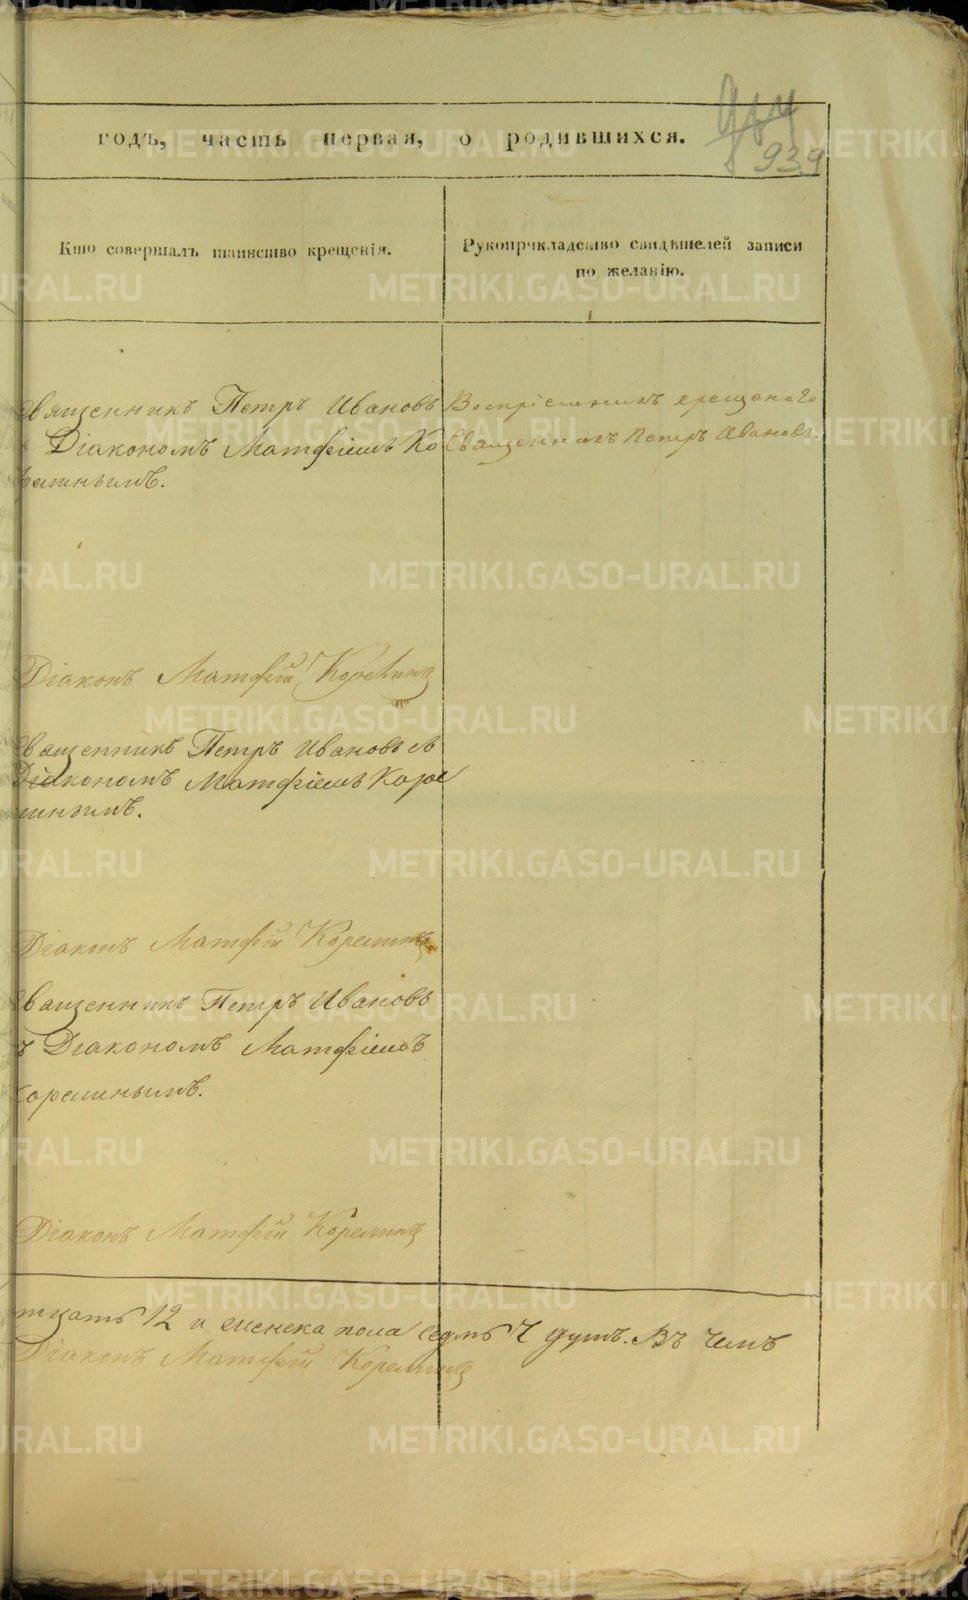 годъ, часть первая, о родившихся.
939
Кто совершалъ таинство крещенія.
Рукоприкладство свидѣтелей записи
по желанію.
Священникъ Петръ Ивановъ
Діакономъ Матфіемъ Ко
Воспріемникъ крещенаго
Священникъ Петръ Ивановъ.
Діаконъ Матфій Корелинъ
Священникъ Петръ Ивановъ съ
Діакономъ Матфіемъ Коре
линымъ.
Діаконъ Матфій Корелинъ
Священникъ Петръ Ивановъ
съ Діакономъ Матфіемъ
Корелинымъ.
Діаконъ Матфій Корелинъ
тцать 12 и женска пола седмь 7 душъ. Въ чемъ
Діаконъ Матфій Корелинъ
METRIKI.GASO-URAL.RU